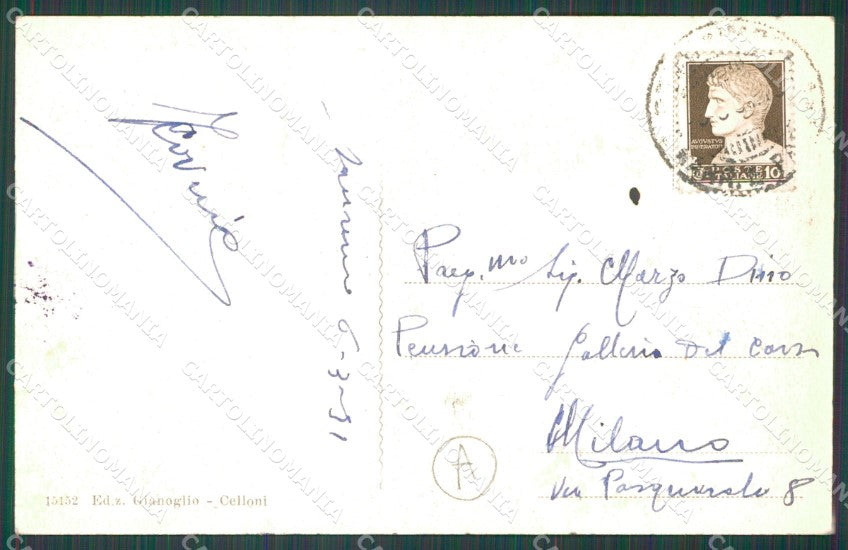 6-3-31
AUGVSTVS
IMPERATOR
POSTE
ITALIANE 10
Preg.mo Sig. Marzo Dino
Pensione Galleria Del Corso
Milano
Via Pasquirolo 8
A
15152 Ediz. Gianoglio - Celloni
CARTOLINOMANIA